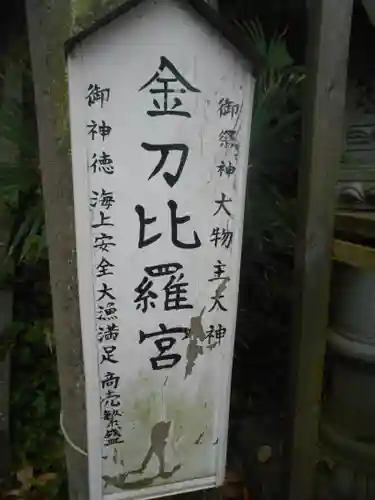 御祭神 大物主大神
金刀比羅宮
御神徳 海上安全 大漁満足 商売繁盛